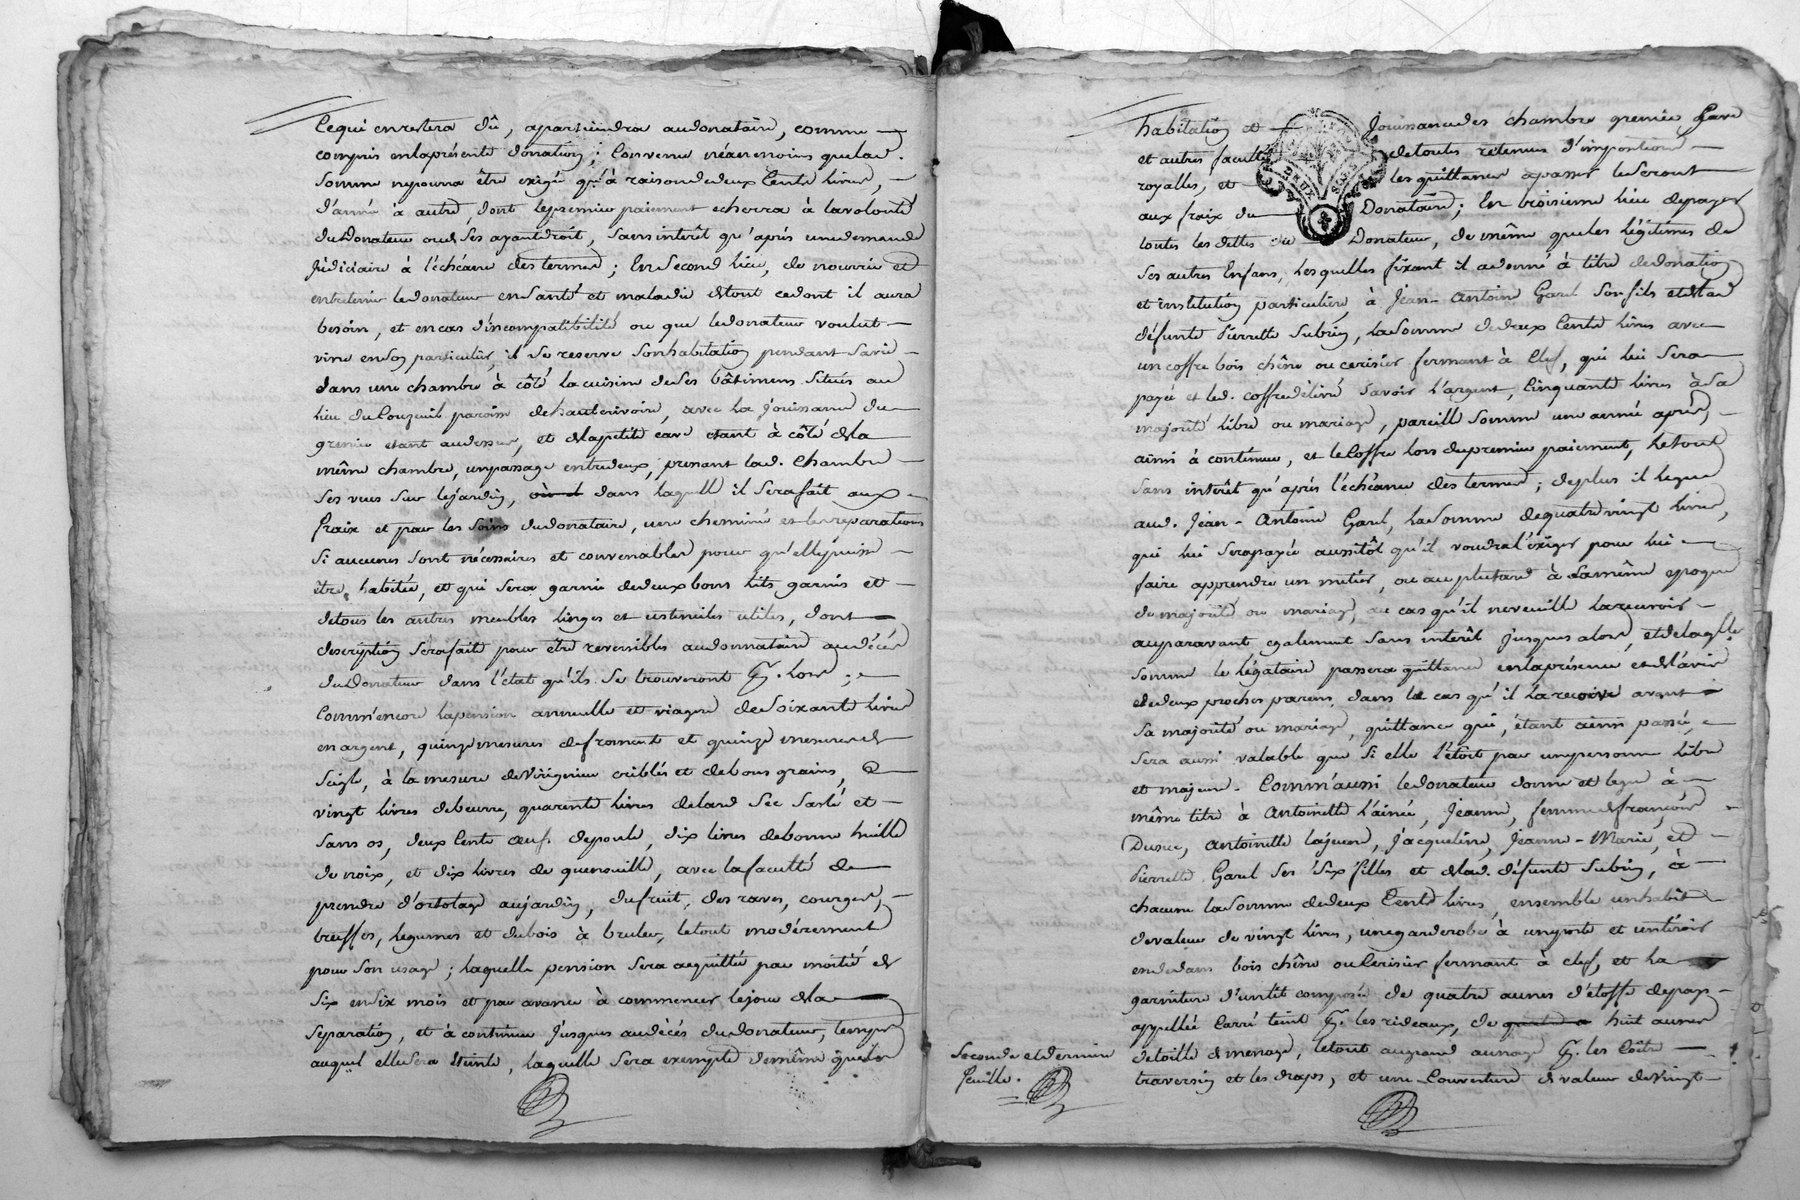 Ce qui en restera dû, apartiendra au donataire, comme
compris en la présente donation; Convenu néanmoins que lad.
Somme ne pourra être exigée qu'à raison de deux Cents livres,
d'année à autre, dont le premier paiement echerra à la volonté
du Donateur ou de Ses ayant droit, Sans interêt qu'après une demande
Judiciaire à l'échéance des termes; En Second lieu, de nourrir et
entretenir le donateur en Santé et maladie et tout ce dont il aura
besoin, et en cas d'incompatibilité ou que le donateur voulut
vivre en Son particulier, il Se reserve Son habitation pendant Sa vie
dans une chambre à côté la cuisine de Ses bâtimens Situés au
lieu du paroisse de hauterivoire, avec la Jouissance du
grenier etant audessus, et de la petite cave etant à côté de la
même chambre, un passage entre deux, prenant lad. Chambre
Ses vues Sur le jardin, dans laquelle il Sera fait aux
fraix et par les Soins du donataire, une cheminée et les reparations
Si aucunes Sont nécessaires et convenables pour qu'elle puisse
être habitée, et qui Sera garnie de deux bons lits garnis et
de tous les autres meubles linges et ustensiles utiles, dont
description Sera fait pour être reversibles au donnataire au décès
du Donateur dans l'état qu'ils Se trouveront p. lors;
Comm'encore la pension annuelle et viagere de Soixante livres
en argent, quinze mesures de froment et quinze mesures de
Seigle, à la mesure de Virigneux criblés et de bons grains,
vingt livres de beurre, quarente livres de lard Sec Salé et
Sans os, deux Cents œufs de poule, dix livres de bonne huille
de noix, et dix livres de quenouille, avec la faculté de
prendre d'ortolage au jardin, du fruit, des raves, courges,
truffes, legumes et du bois à bruler, le tout modérement
pour Son usage; laquelle pension Sera acquittée par moitié de
Six en Six mois et par avance à commencer le jour de la
Séparation, et à continuer Jusques au décès du donateur, temps
auquel elle Sera éteinte, laquelle Sera exempte de même que la
habitation et Jouissance des chambre grenier Cave
et autres facultés de toutes retenues d'impositions
royalles, et les quittances a passer le Seront
aux fraix du Donataire; En troisieme lieu de payer
toutes les dettes du Donateur, de même que les légitimes de
Ses autres Enfans, Lesquelles fixant il a donné à titre de donation
et institution particuliere, à Jean-Antoine Garel Son fils et de lad
défunte Pierrette Subrin, La Somme de deux Cents livres avec
un coffre bois chêne ou cerisier fermant à Clef, qui lui Sera
payée et led. coffre délivré Savoir l'argent, Cinquante livres à Sa
majorité libre ou mariage, pareille Somme une année après,
ainsi à continuer, et le Coffre lors du premier paiement, le tout
Sans intérêt qu'après l'échéance des termes; de plus il legue
aud. Jean-Antoine Garel, La Somme de quatre vingt livres,
qui lui Sera payée aussitôt qu'il voudra l'exiger pour lui
faire apprendre un metier, ou au plutard à La même epoque
de majorité ou mariage, au cas qu'il ne veuille La recevoir
auparavant, egalement Sans interêt Jusques alors, et de laq.lle
Somme le légataire passera quittance en la présence et de l'avis
de deux proches parens, dans le cas qu'il La recoive avant
Sa majorité ou mariage, quittance qui, étant ainsi passée,
Sera aussi valable que Si elle l'étoit par une personne libre
et majeure. Comm'aussi le donateur donne et legue à
même titre à Antoinette L'ainée, Jeanne, femme de françois
Antoinette La jeune, Jacqueline, Jeanne-Marie, et
Pierrette Garel Ses Six filles et de lad. défunte Subrin, à
chacune La Somme de deux Cents livres, ensemble un habit
de valeur de vingt livres, une garderobe à une porte et un tiroir
en dedans bois chêne ou Cerisier fermant à clef, et La
garniture d'un lit composée de quatre aunes d'étoffe de pays
appellée Carré teint p. les rideaux, de huit aunes
de toille de menage, le tout au grand aunage p. les Côtés
traversin et les draps, et une Couverture de valeur de Vingt
Seconde et derniere
feuille.